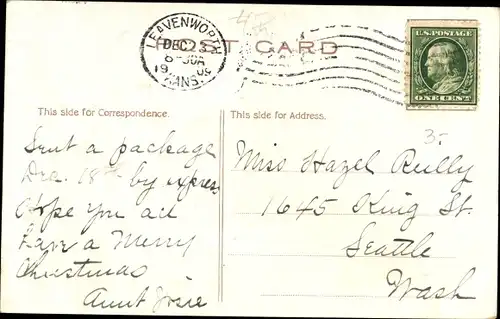 LEAVENWORTH
DEC 23
KANS.
POST CARD
U.S. POSTAGE
ONE CENT
This side for Correspondence.
This side for Address.
3-
Sent a package
Dec. 18th by express
Hope you all
have a Merry
Christmas
Aunt Josie
Miss Hazel Reilly
1645 King St.
Seattle
Wash